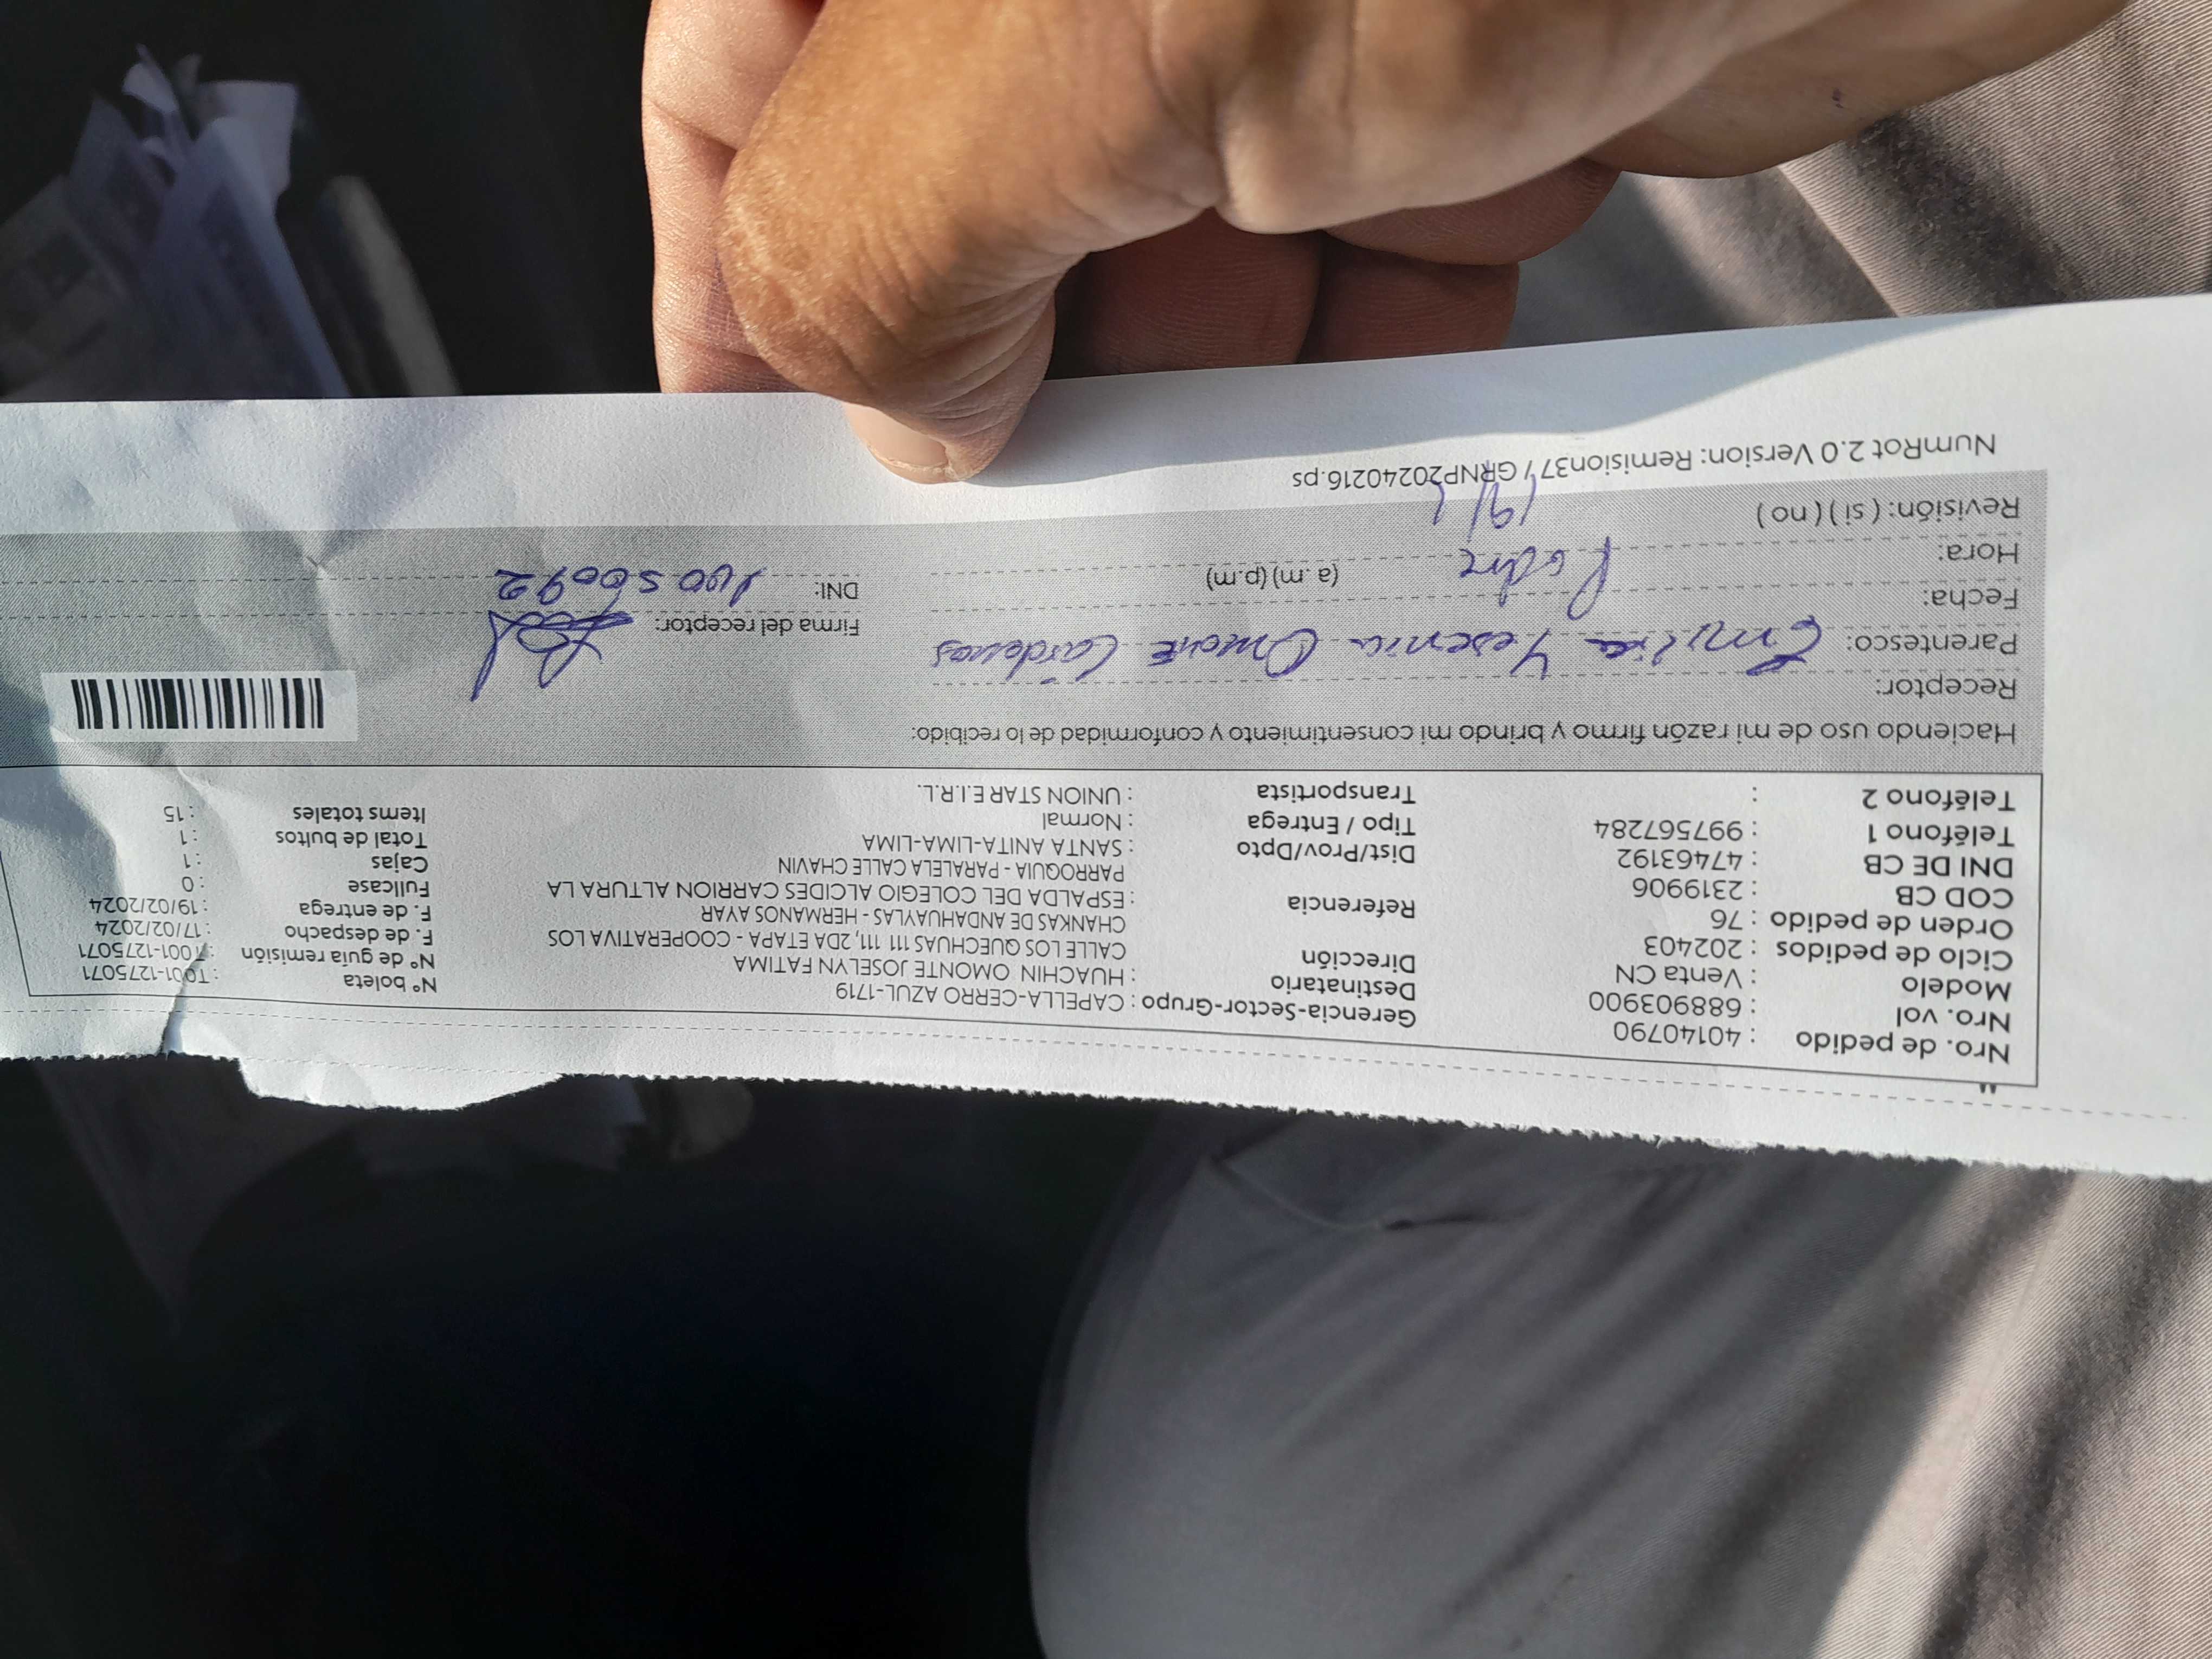 Nro. de pedido : 40140790
Nro. vol : 688903900
Modelo : Venta CN
Ciclo de pedidos : 202403
Orden de pedido : 76
COD CB : 2319906
DNI DE CB : 47463192
Teléfono 1 : 997567284
Teléfono 2 :
Gerencia-Sector-Grupo : CAPELLA-CERRO AZUL-1719
Destinatario : HUACHIN OMONTE JOSELYN FATIMA
Dirección CALLE LOS QUECHUAS 111 111, 2DA ETAPA - COOPERATIVA LOS
CHANKAS DE ANDAHUAYLAS - HERMANOS AYAR
Referencia : ESPALDA DEL COLEGIO ALCIDES CARRION ALTURA LA
PARROQUIA - PARALELA CALLE CHAVIN
Dist/Prov/Dpto : SANTA ANITA-LIMA-LIMA
Tipo / Entrega : Normal
Transportista : UNION STAR E.I.R.L.
N° boleta : T001-1275071
N° de guía remisión : T001-1275071
F. de despacho : 17/02/2024
F. de entrega : 19/02/2024
Fullcase : 0
Cajas : 1
Total de bultos : 1
Items totales : 15
Haciendo uso de mi razón firmo y brindo mi consentimiento y conformidad de lo recibido:
Receptor:
Parentesco: Emilia Yesenia Omonte Cardenas
Fecha:
Hora: (a.m) (p.m)
Revisión: ( si ) ( no )
Firma del receptor:
DNI:
NumRot 2.0 Version: Remision37 / GRNP20240216.ps